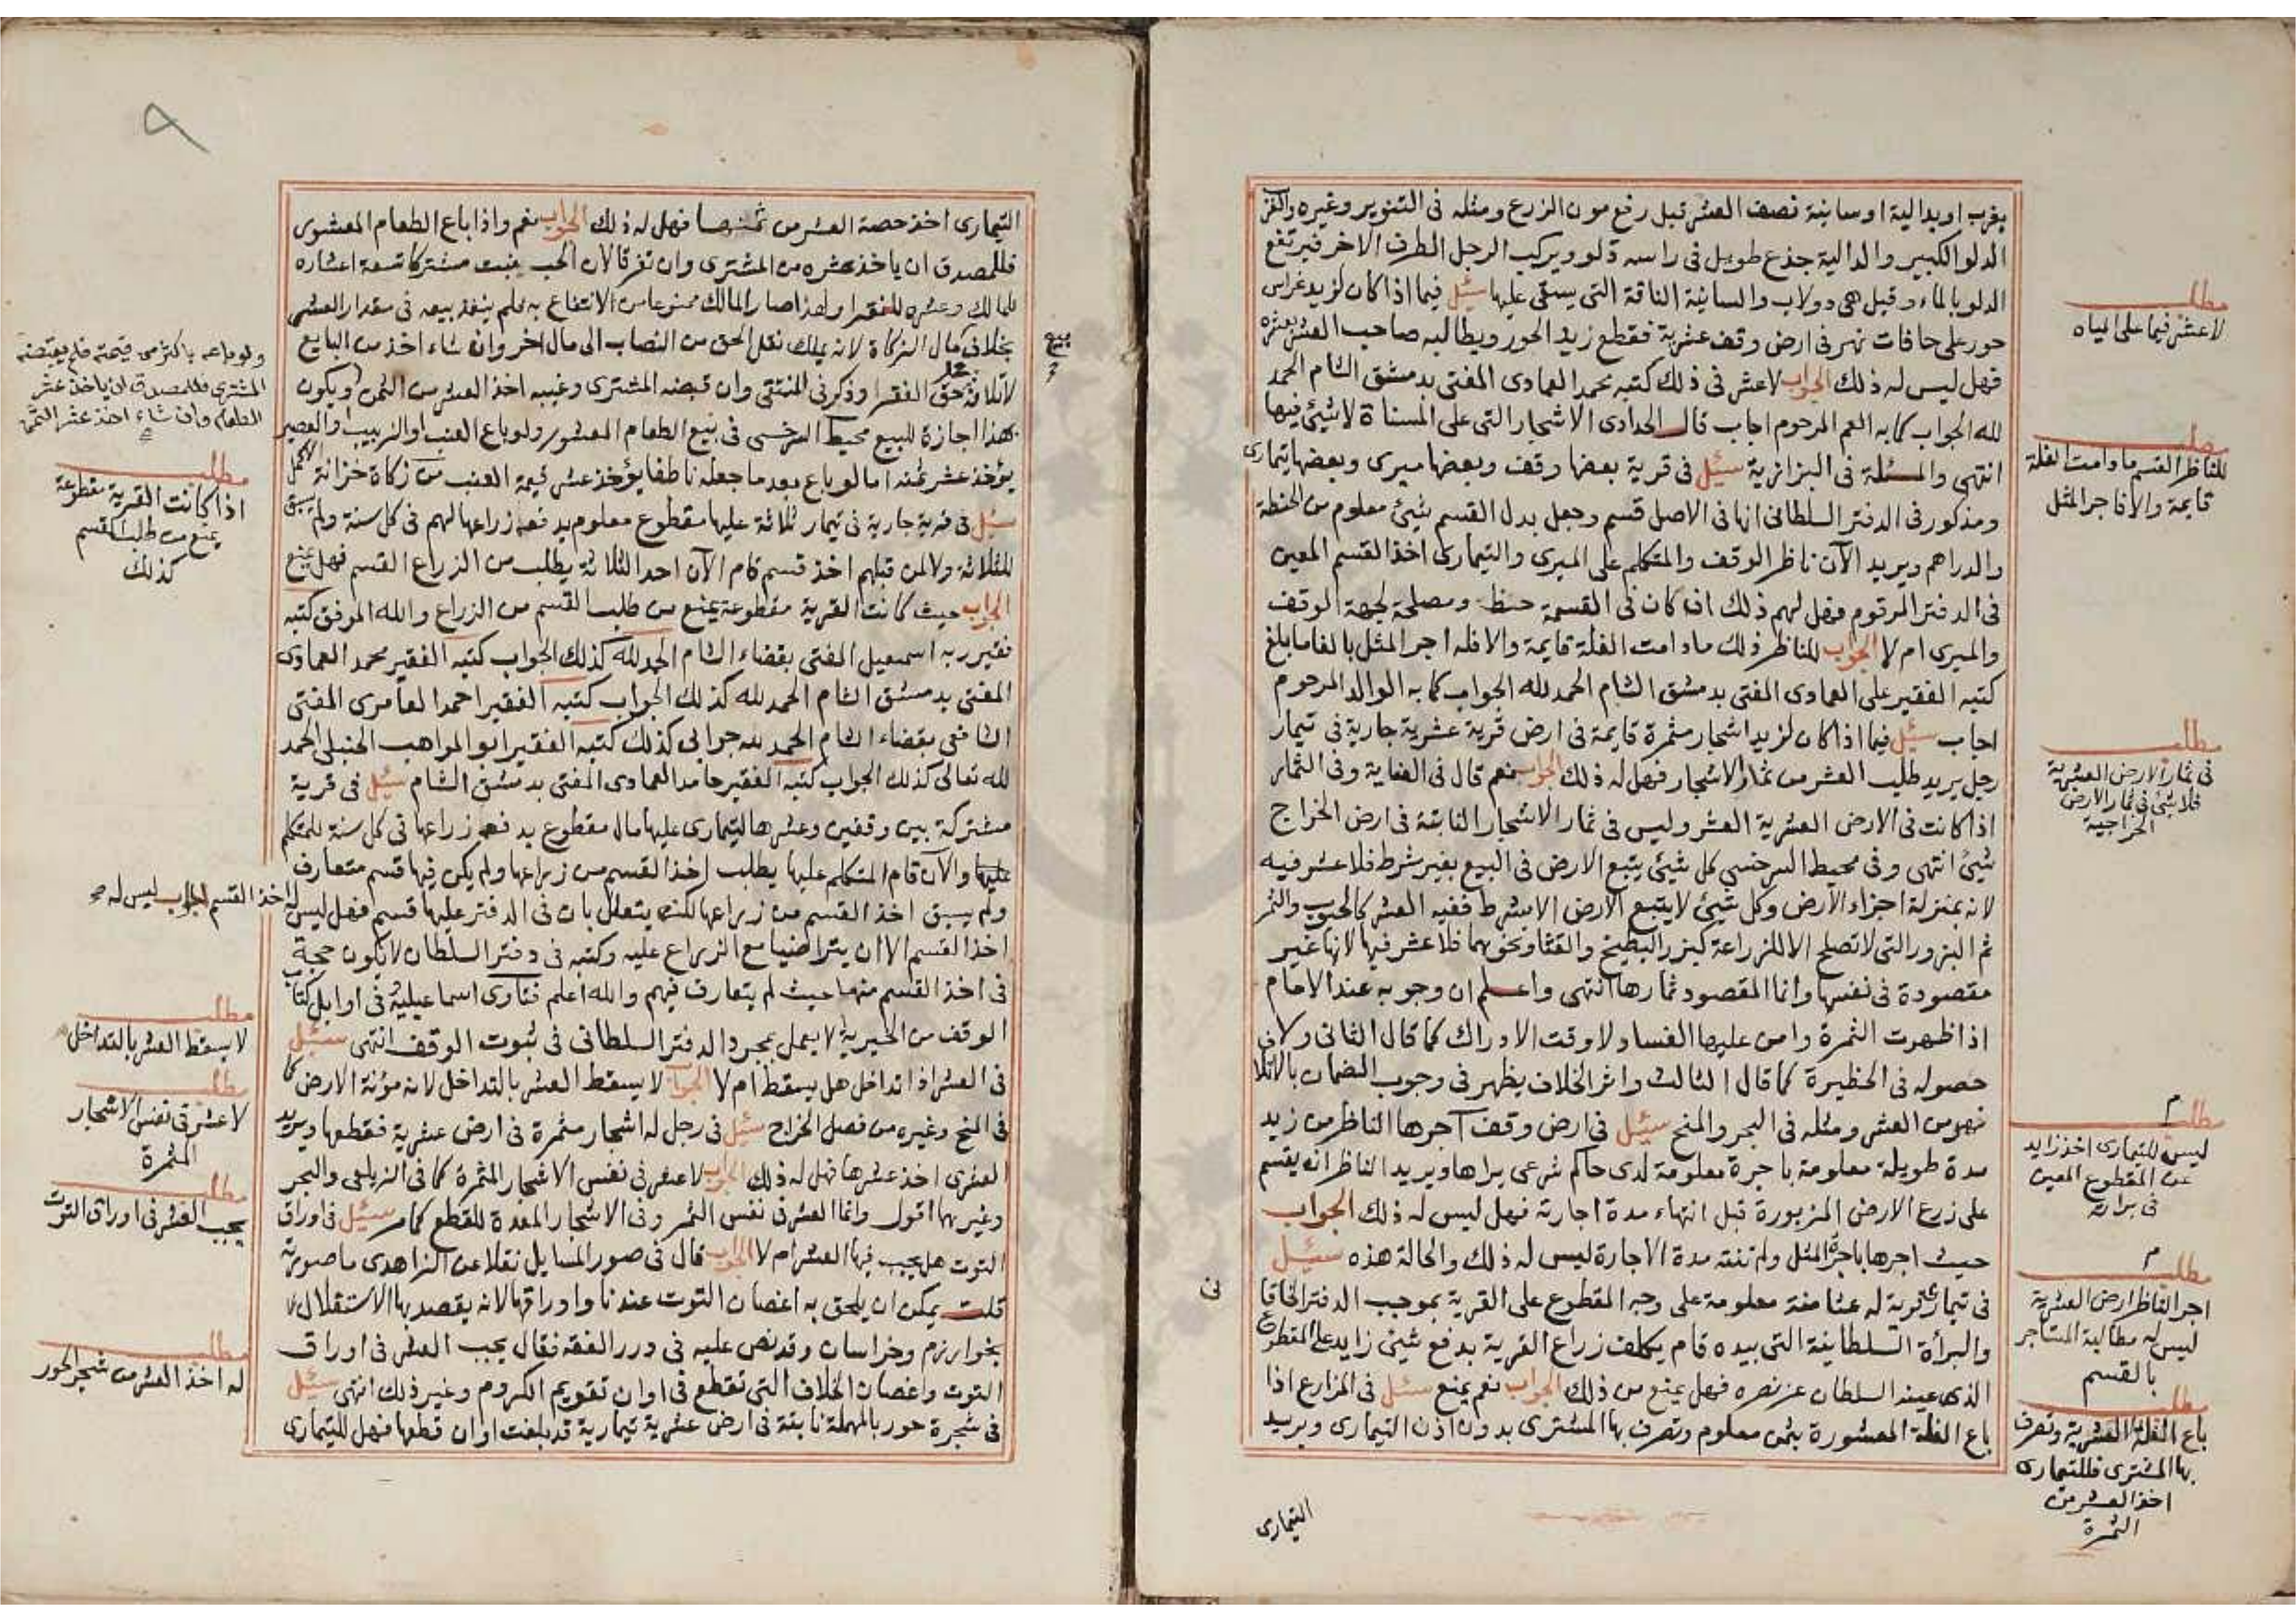 بغرب او بدالية او سانية نصف العشر قبل رفع مون الزرع ومثله فى التنوير وغيره والغرب
الدلو الكبير والدالية جذع طويل فى راسه دلو ويركب الرجل الطرف الاخر فيرتفع
الدلو بالماء وقيل هى دولاب والسانية الناقة التى يستقى عليها سئل فيما اذا كان لزيد غراس
حور على حافات نهر فى ارض وقف عشرية فقطع زيد الحور ويطالبه صاحب العشر بعشره
فهل ليس له ذلك الجواب لا عشر فى ذلك كتبه محمد العمادى المفتى بدمشق الشام الحمد
لله الجواب كما به العم المرحوم اجاب قال الحدادى الاشجار التى على المسناة لا شيئ فيها
انتهى والمسئلة فى البزازية سئل فى قرية بعضها وقف وبعضها ميرى وبعضها تيمارى
ومذكور فى الدفتر السلطانى انها فى الاصل قسم وجعل بدل القسم شيئ معلوم من الحنطة
والدراهم ويريد الآن ناظر الوقف والمتكلم على الميرى والتيمارى اخذ القسم المعين
فى الدفتر المرقوم فهل لهم ذلك ان كان فى القسمة حظ ومصلحة لجهة الوقف
والميرى ام لا الجواب للناظر ذلك ما دامت الغلة قايمة والا فله اجر المثل بالغا ما بلغ
كتبه الفقير على العمادى المفتى بدمشق الشام الحمد لله الجواب كما به الوالد المرحوم
اجاب سئل فيما اذا كان لزيد اشجار مثمرة قايمة فى ارض قرية عشرية جارية فى تيمار
رجل يريد طلب العشر من ثمار الاشجار فهل له ذلك الجواب نعم قال فى الغاية وفى الثمار
اذا كانت فى الارض العشرية العشر وليس فى ثمار الاشجار النابتة فى ارض الخراج
شيئ انتهى وفى محيط السرخسى كل شيئ يتبع الارض فى البيع بغير شرط فلا عشر فيه
لانه بمنزلة اجزاء الارض وكل شيئ لا يتبع الارض الا بشرط ففيه العشر كالحبوب والثمر
ثم البزور التى لا تصلح الا للزراعة كبزر البطيخ والقثا ونحوهما فلا عشر فيها لانها غير
مقصودة فى نفسها وانما المقصود ثمارها انتهى واعلم ان وجوبه عند الامام
اذا ظهرت الثمرة وامن عليها الفساد لا وقت الادراك كما قال الثانى ولا فى
حصوله فى الحظيرة كما قال الثالث واثر الخلاف يظهر فى وجوب الضمان بالاتلا
نهر من العشر ومثله فى البحر والمنح سئيل فى ارض وقف آجرها الناظر من زيد
مدة طويلة معلومة باجرة معلومة لدى حاكم شرعى يراها ويريد الناظر ان يقسم
على زرع الارض المزبورة قبل انتهاء مدة اجارته فهل ليس له ذلك الجواب
حيث اجرها باجرة المثل ولم تنته مدة الاجارة ليس له ذلك والحالة هذه سئيل
فى تيمارى قرية له عثامنة معلومة على وجه المقطوع على القرية بموجب الدفتر الخاقا
والبرأة السلطانية التى بيده قام يكلف زراع القرية بدفع شيئ زايد على المقطوع
الذى عينه السلطان عز نصره فهل يمنع من ذلك الجواب نعم يمنع سئل فى المزارع اذا
باع الغلة المعشورة بثمن معلوم وتصرف بها المشترى بدون اذن التيمارى ويريد
التيمارى
مطلب
لا عشر فيما على المياه
مطلب
للناظر القسم ما دامت الغلة
قايمة والا فاجر المثل
مطلب
فى ثمار الارض العشرية
فلا شيئ فى ثمار الارض
الخراجية
مطلب
ليس للتيمارى اخذ زايد
عن المقطوع المعين
فى براته
مطلب
اجر الناظر ارض العشرية
ليس له مطالبة المستاجر
بالقسم
مطلب
باع الغلة العشرية وتصرف
بها المشترى فللتيمارى
اخذ العشر من
الثمرة
التيمارى اخذ حصة العشر من ثمنها فهل له ذلك الجواب نعم واذا باع الطعام المعشور
فللمصدق ان ياخذ عشره من المشترى وان تفرقا لان الحب ينبت مشتركا تسعة اعشاره
للمالك وعشره للفقرا ولهذا صار المالك ممنوعا من الانتفاع به فلم ينفذ بيعه فى مقدار العشر
بخلاف مال الزكاة لانه يملك نقل الحق من النصاب الى مال اخر وان شاء اخذ من البايع
لاتلافه حق الفقرا وذكر فى المنتقى وان قبضه المشترى وغيبه اخذ العشر من الثمن ويكون
هذا اجازة للبيع محيط السرخسى فى بيع الطعام المعشور ولو باع العنب او الزبيب والعصير
يؤخذ عشر ثمنه اما لو باع بعد ما جعله ناطفا يؤخذ عشر قيمة العنب من زكاة خزانة الاكمل
سئل فى قرية جارية فى تيمار ثلاثة عليها مقطوع معلوم يدفعه زراعها لهم فى كل سنة ولم يسبق
للثلاثة ولا لمن قبلهم اخذ قسم قام الآن احد الثلاثة يطلب من الزراع القسم فهل يمنع
الجواب حيث كانت القرية مقطوعة يمنع من طلب القسم من الزراع والله الموفق كتبه
فقير ربه اسمعيل المفتى بقضاء الشام الحمد لله كذلك الجواب كتبه الفقير محمد العمادى
المفتى بدمشق الشام الحمد لله كذلك الجواب كتبه الفقير احمد العامرى المفتى
الشافعى بقضاء الشام الحمد لله جوابى كذلك كتبه الفقير ابو المواهب الحنبلى الحمد
لله تعالى كذلك الجواب كتبه الفقير حامد العمادى المفتى بدمشق الشام سئل فى قرية
مشتركة بين وقفين وعشرها لتيمارى عليها مال مقطوع يدفعه زراعها فى كل سنة للمتكلم
عليها والآن قام المتكلم عليها يطلب اخذ القسم من زراعها ولم يكن فيها قسم متعارف
ولم يسبق اخذ القسم من زراعها لكنه يتعلل بان فى الدفتر عليها قسم فهل ليس له اخذ القسم الجواب ليس له صح
اخذ القسم الا ان يتراضيا مع الزراع عليه وكتبه فى دفتر السلطان لا يكون حجة
فى اخذ القسم منها حيث لم يتعارف فيهم والله اعلم فتاوى اسماعيلية فى اوايل كتاب
الوقف من الخيرية لا يعمل بمجرد الدفتر السلطانى فى ثبوت الوقف انتهى سئيل
فى العشر اذا تداخل هل يسقط ام لا الجواب لا يسقط العشر بالتداخل لانه مؤنة الارض كما
فى المنح وغيره من فصل الخراج سئيل فى رجل له اشجار مثمرة فى ارض عشرية فقطعها ويريد
العشرى اخذ عشرها فهل له ذلك الجواب لا عشر فى نفس الاشجار المثمرة كما فى الزيلعى والبحر
وغيرهما اقول وانما العشر فى نفس الثمر وفى الاشجار المعدة للقطع كما مر سئيل فى اوراق
التوت هل يجب فيها العشر ام لا الجواب قال فى صور المسايل نقلا عن الزاهدى ما صورته
قلت يمكن ان يلحق به اغصان التوت عندنا واوراقها لانه يقصد بها الاستغلال
بخوارزم وخراسان وقد نص عليه فى درر الفقه فقال يجب العشر فى اوراق
التوت واغصان الخلاف التى تقطع فى اوان تقويم الكروم وغير ذلك انتهى سئيل
فى شجرة حور بالمهملة نابتة فى ارض عشرية تيمارية قد بلغت اوان قطعها فهل للتيمارى
ولو باعه باكثر من قيمته فلم يقبضه
المشترى فللمصدق ان ياخذ عشر
الطعام وان شاء اخذ عشر الثمن
مطلب
اذا كانت القرية مقطوعة
يمنع من طلب القسم
كذلك
مطلب
لا يسقط العشر بالتداخل
مطلب
لا عشر فى نفس الاشجار
المثمرة
مطلب
يجب العشر فى اوراق التوت
مطلب
له اخذ العشر من شجر الحور